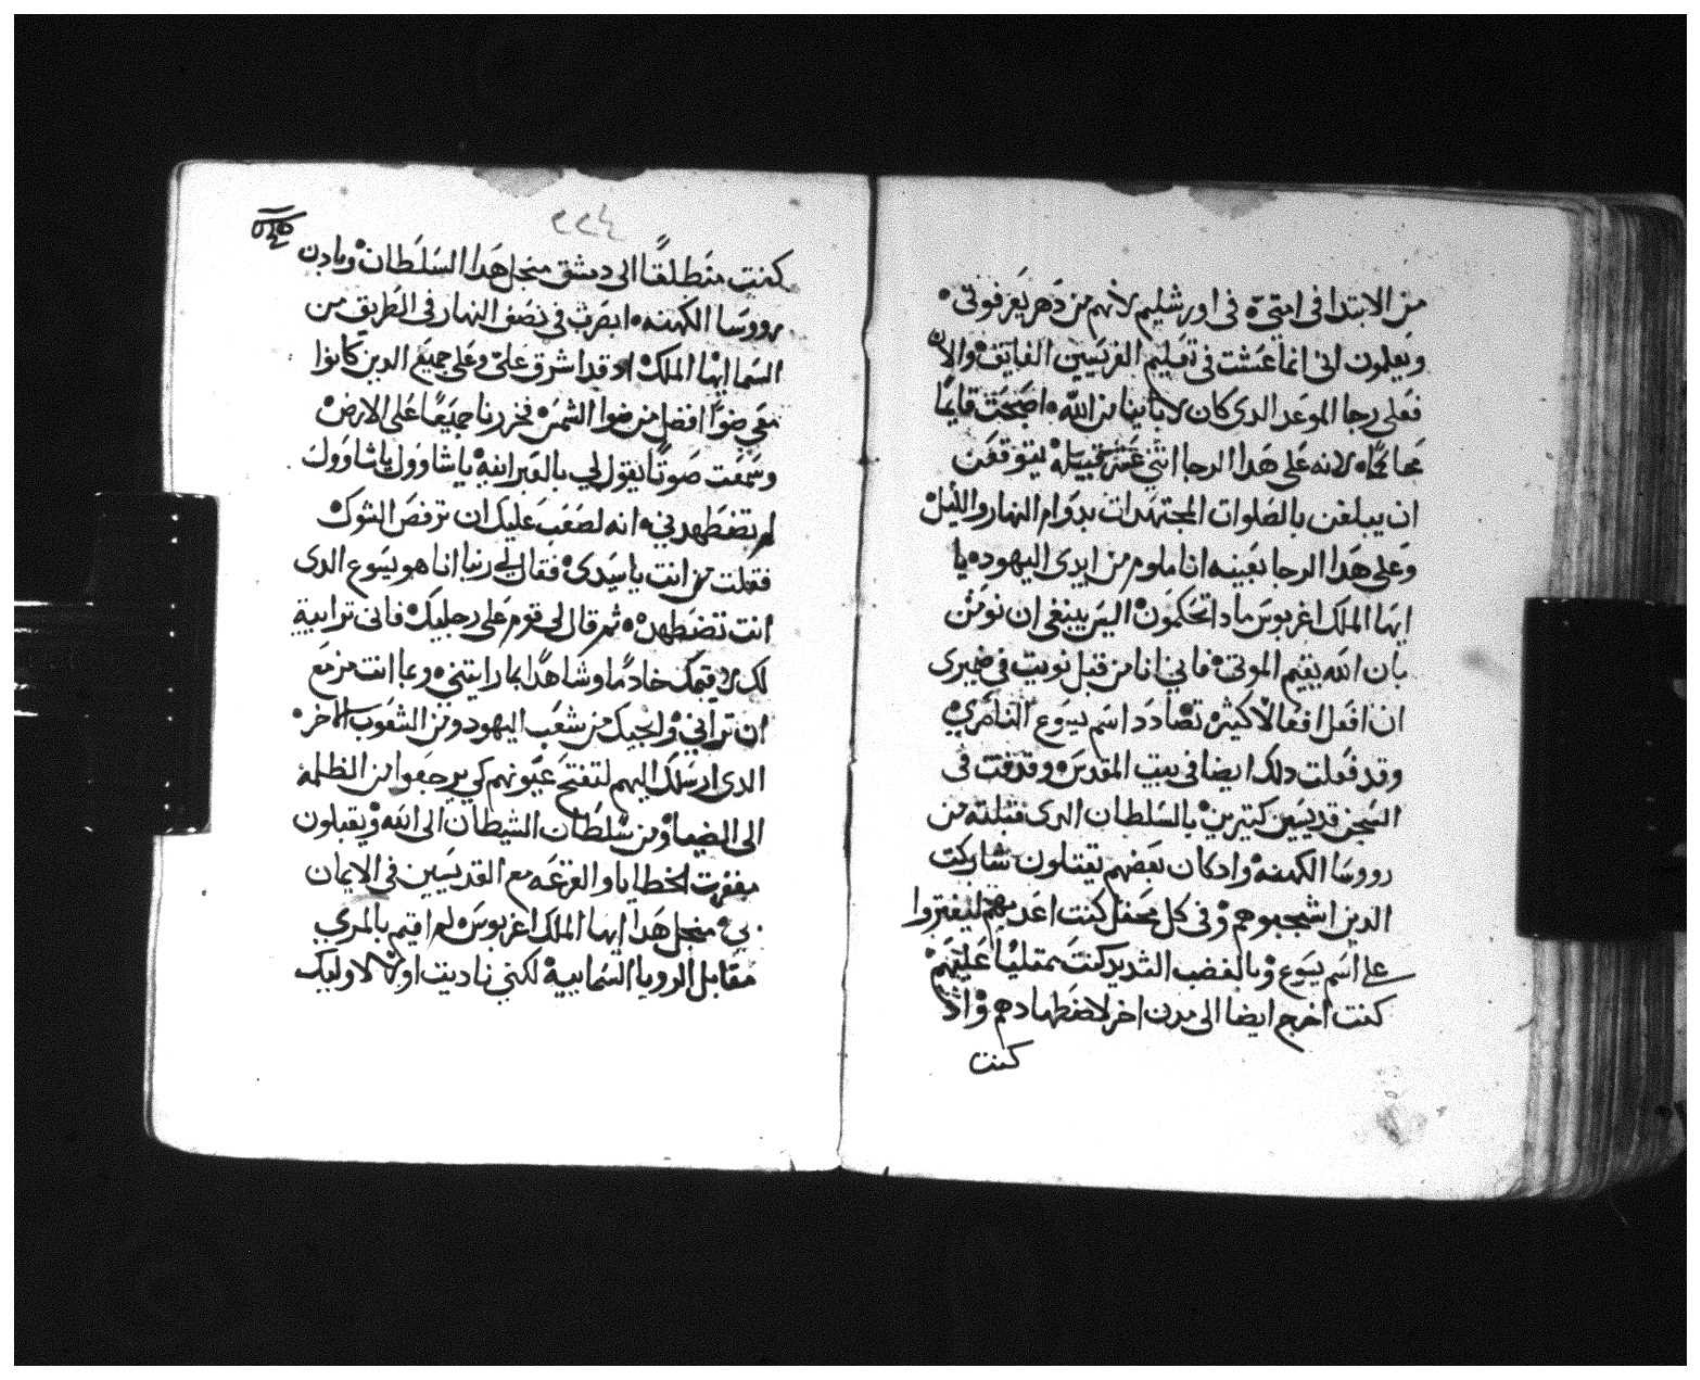 من الابتدا فى امتى فى اورشليم لانهم من دهر يعرفونى
ويعلمون انى انما عشت فى تعليم الفريسيين الفايق والان
فعلى رجا الموعد الدى كان لاباينا من الله اصبحت قايمًا
محاكمًا لانه على هدا الرجا اثنى عشر قبيله يتوقعن
ان يبلغن بالصلوات المجتهدات بدوام النهار والليل
وعلى هدا الرجا بعينه انا ملوم من ايدى اليهود يا
ايها الملك اغربوس مادا تحكمون اليس ينبغى ان نومن
بان الله يقيم الموتى فاني انا من قبل نويت في ضميرى
ان افعل افعالا كثيره تضادد اسم يسوع الناصري
وقد فعلت دلك ايضا فى بيت المقدس وقدفت فى
السجن قديسين كتيرين بالسلطان الدى قبلته من
رووسا الكهنه وادكان بعضهم يقتلون شاركت
الدين اشجبوهم وفى كل محفل كنت اعدبهم ليفتروا
على اسم يسوع وبالغضب الشديد كنت ممتليًا عليهم
كنت اخرج ايضا الى مدن اخر لاضطهادهم واد
كنت
٢٢٤
كنت منطلقًا الى دمشق منجل هدا السلطان وبادن
رووسا الكهنه ابصرت في نصف النهار فى الطريق من
السما ايها الملك اد قد اشرق علىّ وعلى جميع الدين كانوا
معي ضوًا افضل من ضوا الشمس فخررنا جميعًا على الارض
وسمعت صوتًا يقول لي بالعبرانيه ياشاوول ياشاوول
لم تضطهدني انه لصعب عليك ان ترفص الشوك
فقلت من انت ياسيدى فقال لي ربنا انا هو يسوع الدى
انت تضطهده ثم قال لى قوم على رجليك فانى تراييت
لك لاقيمك خادمًا وشاهدًا بما رايتني وبما انت مزمع
ان تراني وانجيك من شعب اليهود ومن الشعوب الاخر
الدى ارسلك اليهم لتفتح عيونهم كي يرجعوا من الظلمة
الى الضيا ومن سلطان الشيطان الى الله ويقبلون
مغفرت الخطايا والقرعه مع القديسين فى الايمان
بي منجل هدا ايها الملك اغربوس لم اقيم بالمري
مقابل الرويا السماييه لكني ناديت اولًا لاوليك